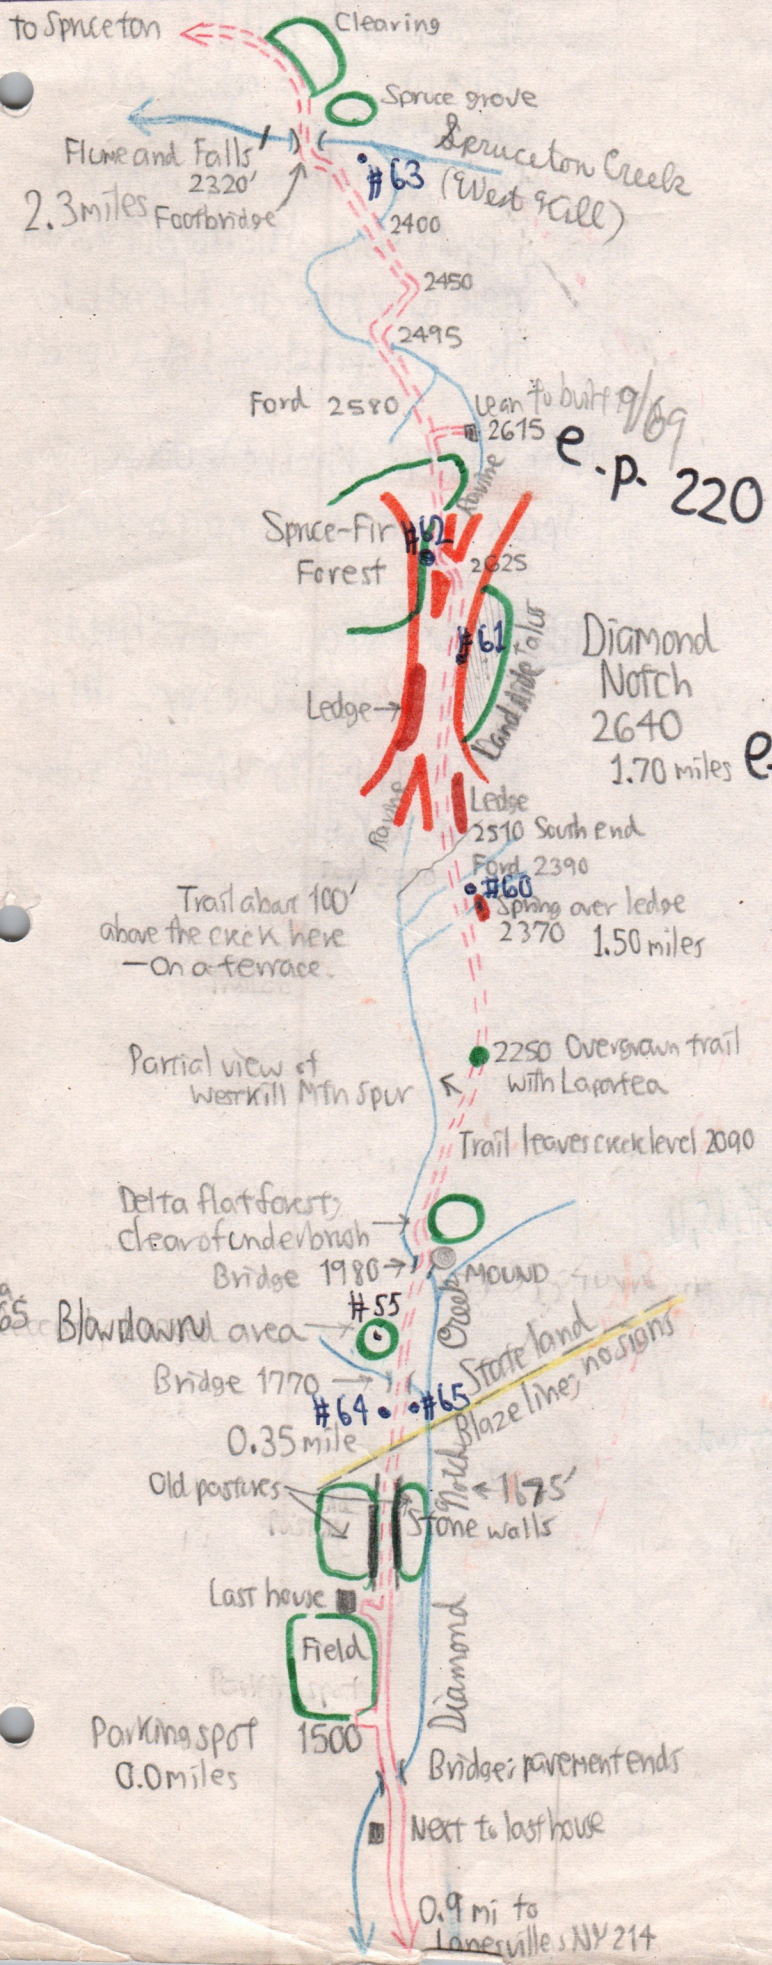 to Spruceton
Clearing
Spruce grove
Flume and Falls
2320'
2.3 miles
Footbridge
#63
Spruceton Creek
(West Kill)
2400
2450
2495
Ford 2580
Lean to built 9/69
2615
e.p. 220
Ravine
Spruce-Fir
Forest
#62
2625
#61
Landslide talus
Diamond
Notch
2640
1.70 miles
e.
Ledge
Ravine
Ledge
2510 South end
Ford 2390
#60
Spring over ledge
2370
1.50 miles
Trail about 100'
above the creek here
—On a terrace.
2250 Overgrown trail
with Laportea
Partial view of
Westkill Mtn Spur
Trail leaves creek level 2090
Delta flat forest;
clear of underbrush
Bridge 1980
MOUND
#55
65
Blowdown area
Bridge 1770
#64
#65
State land
Blaze line; no signs
0.35 mile
Old pastures
1675'
Stone walls
Last house
Field
Diamond Notch Creek
Parking spot 1500
0.0 miles
Bridge; pavement ends
Next to last house
0.9 mi to
Lanesville, NY 214